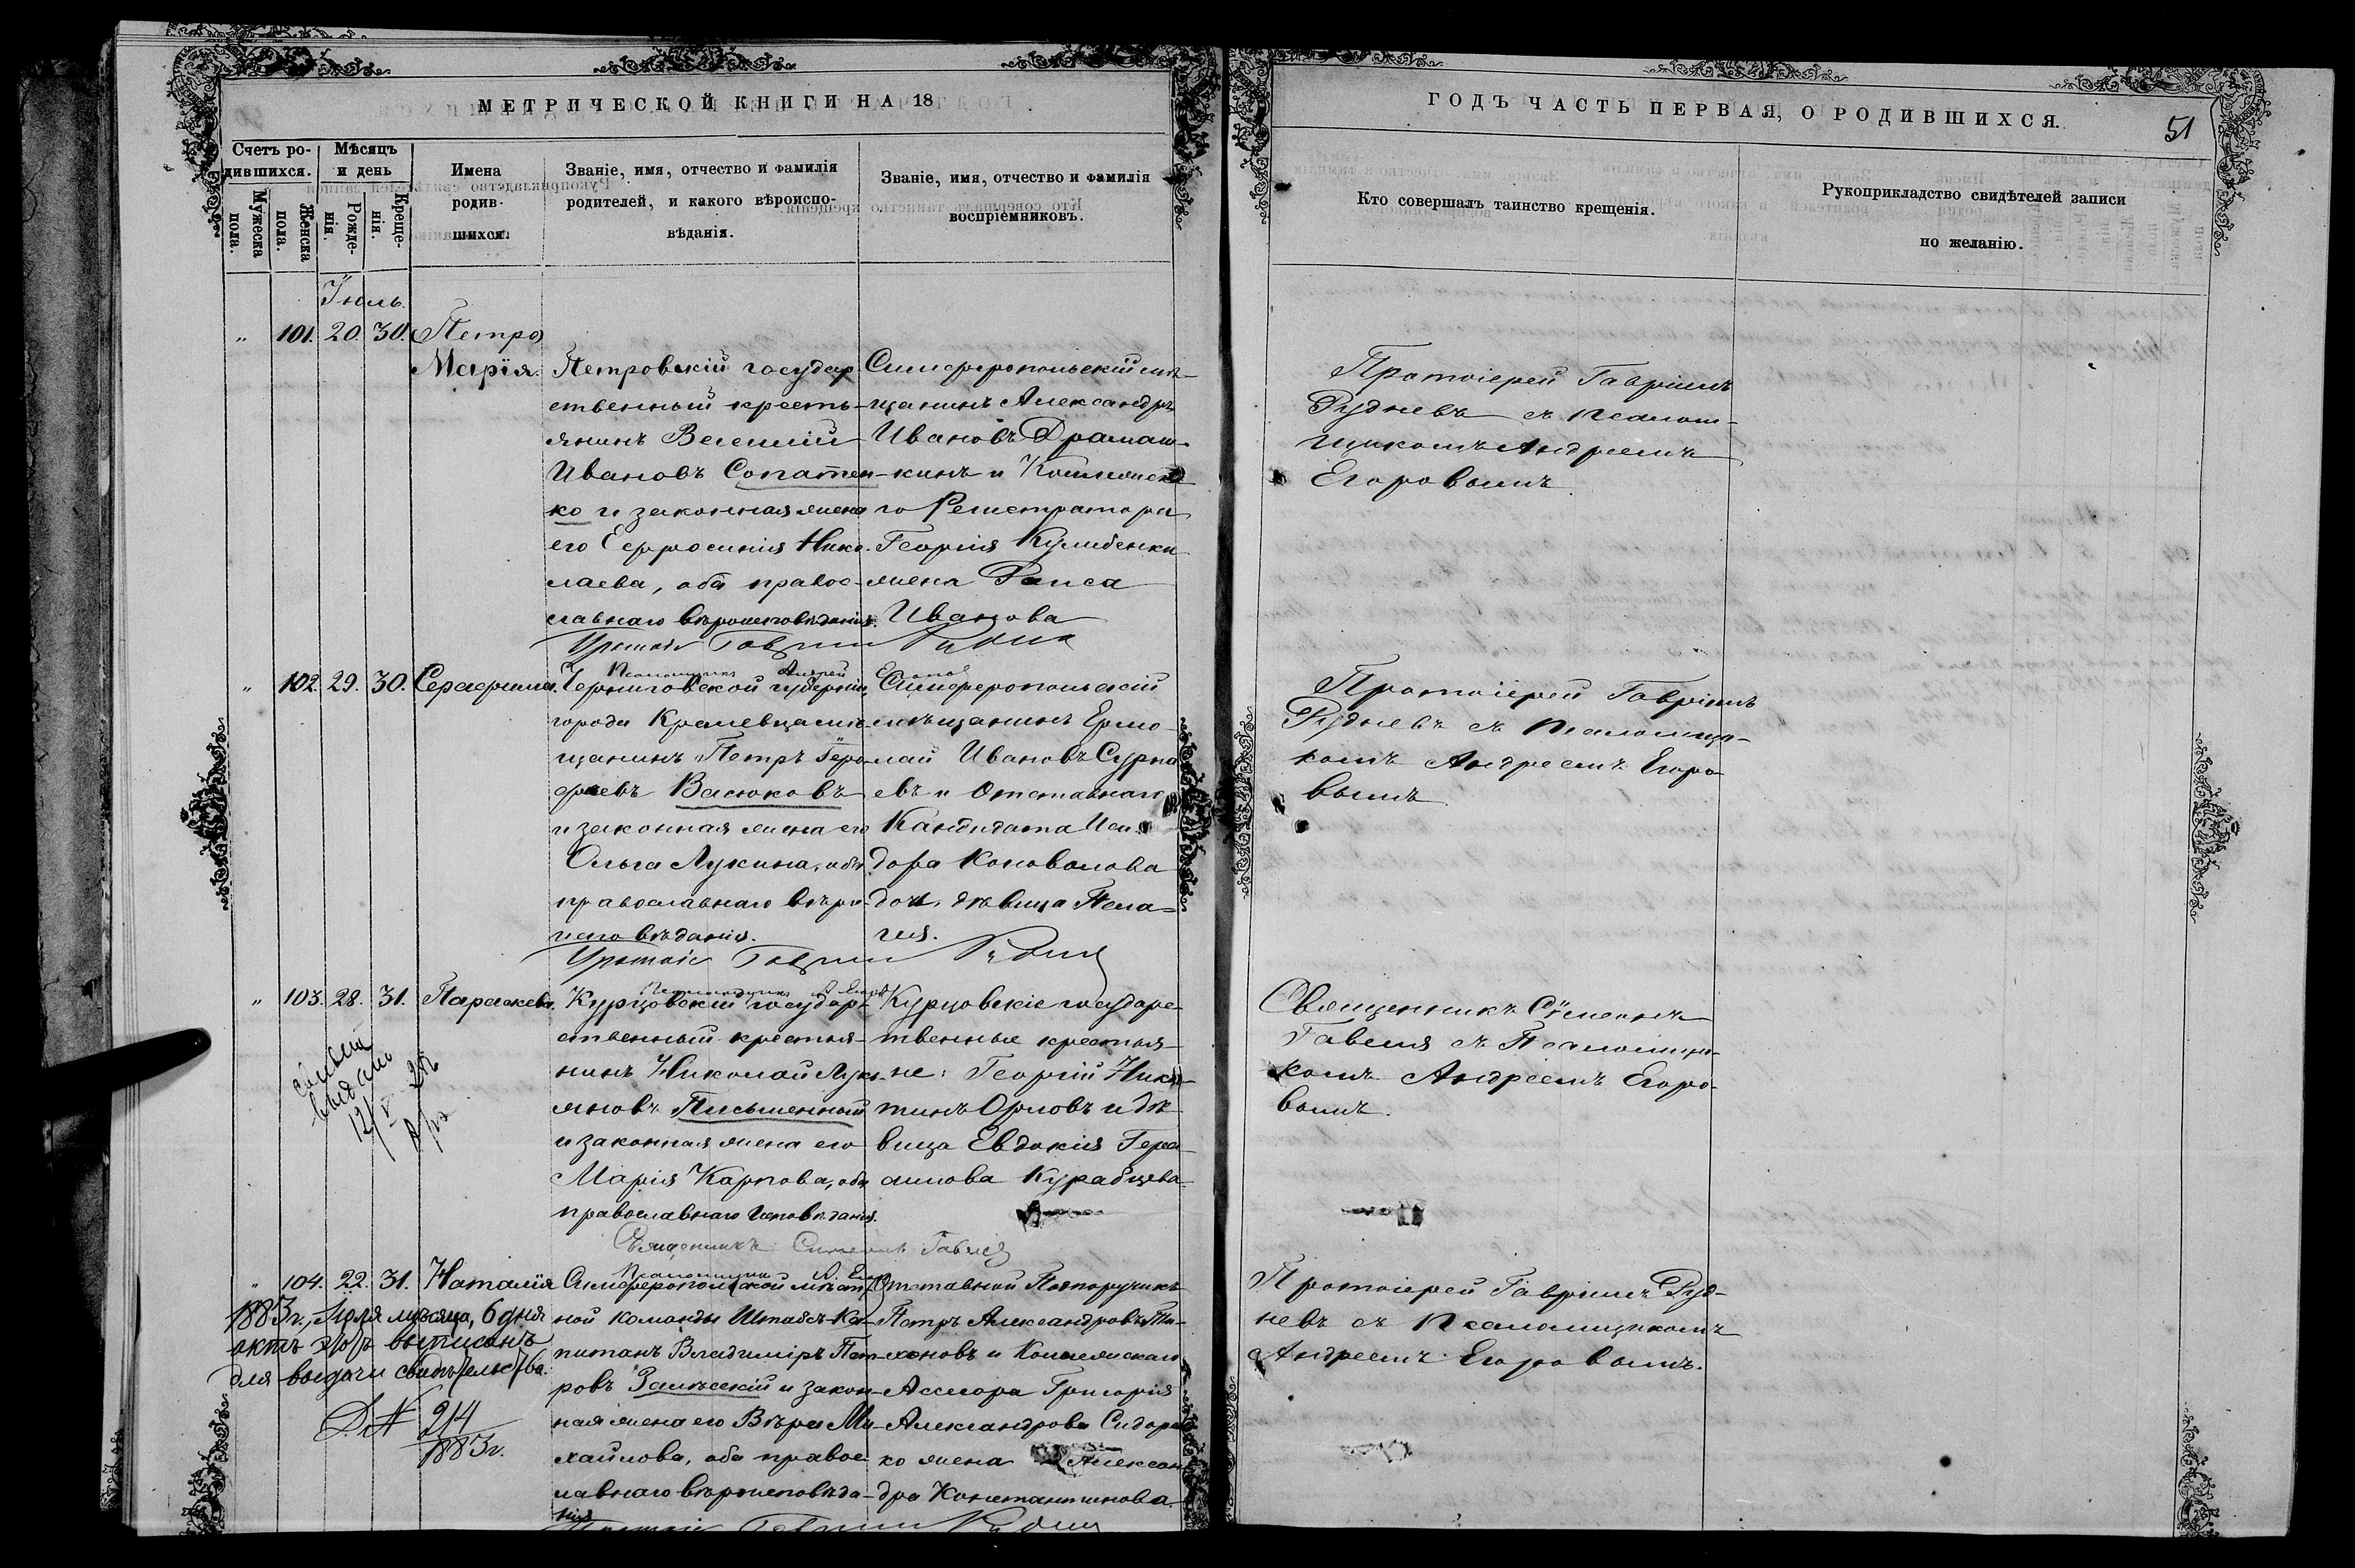 МЕТРИЧЕСКОЙ КНИГИ НА 18
ГОДЪ ЧАСТЬ ПЕРВАЯ, О РОДИВШИХСЯ.
51
Счетъ ро-
дившихся.
Мужеска
пола.
Женска
пола.
Мѣсяцъ
и день
Рожде-
нія.
Креще-
нія.
Имена
родив-
шихся.
Званіе, имя, отчество и фамилія
родителей, и какого вѣроиспо-
вѣданія.
Званіе, имя, отчество и фамилія
воспріемниковъ.
Кто совершалъ таинство крещенія.
Рукоприкладство свидѣтелей записи
по желанію.
Іюль.
" 101. 20. 30. Петро
Марія.
Петровскій государ-
ственный кресть-
янинъ Василій
Ивановъ Сопатен-
ко и законная жена
его Евфросинія Нико-
лаева, оба правос-
лавнаго вѣроисповѣданія.
Симферопольскій мѣ-
щанинъ Александръ
Ивановъ Драмаш-
кинъ и Коллежска-
го Регистратора
Георгія Кулибенки
жена Раиса
Иванова
Протоіерей Гавріилъ
Рудневъ съ псалом-
щикомъ Андреемъ
Егоровымъ.
Протоіе Гавріи Рудне
Псаломщикъ Андрей Егоров
" 102. 29. 30. Серафима.
Черниговской губерніи,
города Кролевца мѣ-
щанинъ Петръ Геро-
феевъ Васюковъ
и законная жена его
Ольга Лукина, оба
православнаго вѣро-
исповѣданія.
Симферопольскій
мѣщанинъ Ермо-
лай Ивановъ Сурна
евъ и Отставнаго
Кандидата Иси-
дора Коновалова
дочь, дѣвица Пела-
гія.
Протоіерей Гавріилъ
Рудневъ съ Псаломщи-
комъ Андреемъ Егоро-
вымъ.
Протоіе Гавріи Рудне
Псаломщикъ А. Егоров
" 103. 28. 31. Параскева.
Курцовскій государ-
ственный крестья-
нинъ Николай Лукь-
яновъ Письменный
и законная жена его
Марія Карпова, оба
православнаго исповѣданія.
Курцовскіе государс-
твенные крестья-
не: Георгій Ники-
тинъ Орловъ и дѣ-
вица Евдокія Гера-
симова Курабцева.
Священникъ Сѵмеонъ
Гавеля съ Псаломщи-
комъ Андреемъ Егоро-
вымъ.
выдано
12/V
Священникъ Симеонъ Гавеля
Псаломщикъ А. Егоров
" 104. 22. 31. Наталія
Симферопольской мѣст-
ной команды Штабсъ-Ка-
питанъ Владиміръ Пет-
ровъ Залѣсскій и закон-
ная жена его Вѣра Ми-
хайлова, оба правос-
лавнаго вѣроисповѣда-
нія
Отставной Подпоручикъ
Петръ Александровъ Ти-
хоновъ и Коллежскаго
Асессора Григорія
Александрова Сидорен
ко жена Алексан-
дра Константинова.
Протоіерей Гавріилъ Руд-
невъ съ Псаломщикомъ
Андреемъ Егоровымъ.
1883г., Іюля мѣсяца, 6 дня
актъ этотъ выписанъ
для выдачи свидѣтельства.
Д. № 214
1883г.
Протоіе Гавріи Рудне